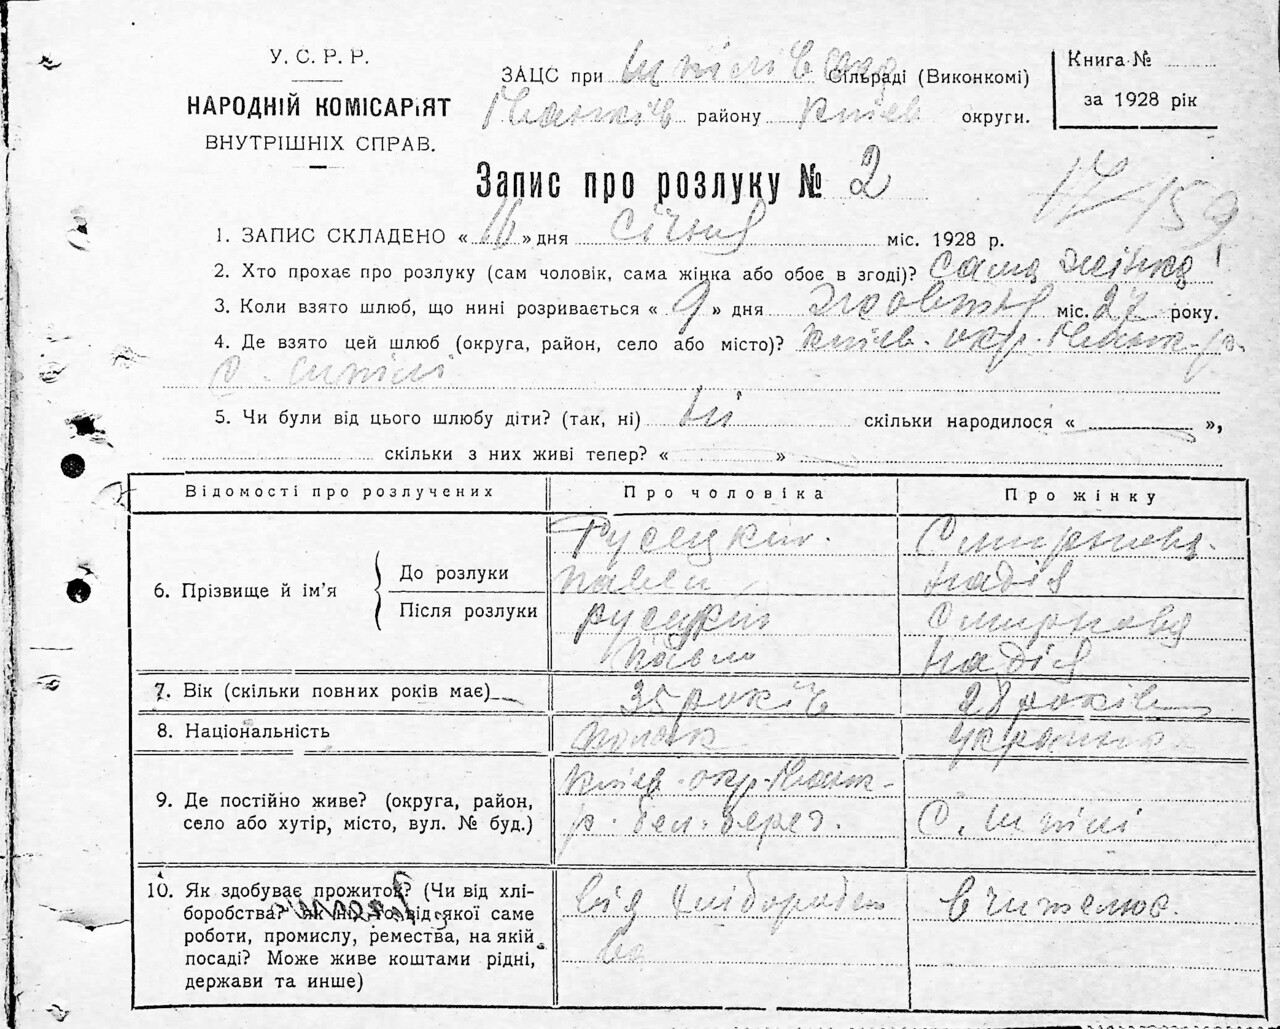 У. С. Р. Р.
НАРОДНІЙ КОМІСАРІЯТ
ВНУТРІШНІХ СПРАВ.
ЗАЦС при Шпілівськ Сільраді (Виконкомі)
Іванків району Київ округи.
Книга №
за 1928 рік
Запис про розлуку № 2
17/159
1. ЗАПИС СКЛАДЕНО « 16 » дня Січня міс. 1928 р.
2. Хто прохає про розлуку (сам чоловік, сама жінка або обоє в згоді)? сама жінка
3. Коли взято шлюб, що нині розривається « 9 » дня Жовтня міс. 27 року.
4. Де взято цей шлюб (округа, район, село або місто)? Київ. окр. Іванк. р.
С. Шпілі
5. Чи були від цього шлюбу діти? (так, ні) ні скільки народилося « — »,
скільки з них живі тепер? « »
Відомості про розлучених Про чоловіка Про жінку
6. Прізвище й ім'я
До розлуки Русецкий. Павло Смирнова. Надія
Після розлуки Русецкий Павло Смирнова Надія
7. Вік (скільки повних років має) 35 років 28 років
8. Національність поляк українка
9. Де постійно живе? (округа, район, село або хутір, місто, вул. № буд.) Київ. окр. Іванк. р. С. Шпілі
10. Як здобуває прожиток? (Чи від хлі-
боробства? Як ні, то від якої саме
роботи, промислу, ремества, на якій
посаді? Може живе коштами рідні,
держави та инше)
Від хліборобства
Вчителює.